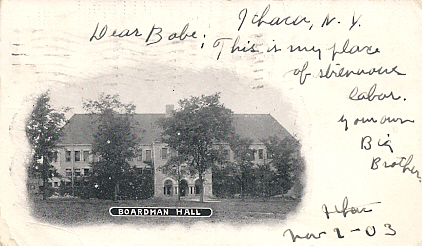 Ithaca, N.Y.
Dear Babe;
This is my place
of strenuous
labor.
your own
Big
Brother.
BOARDMAN HALL
Nov 2-03